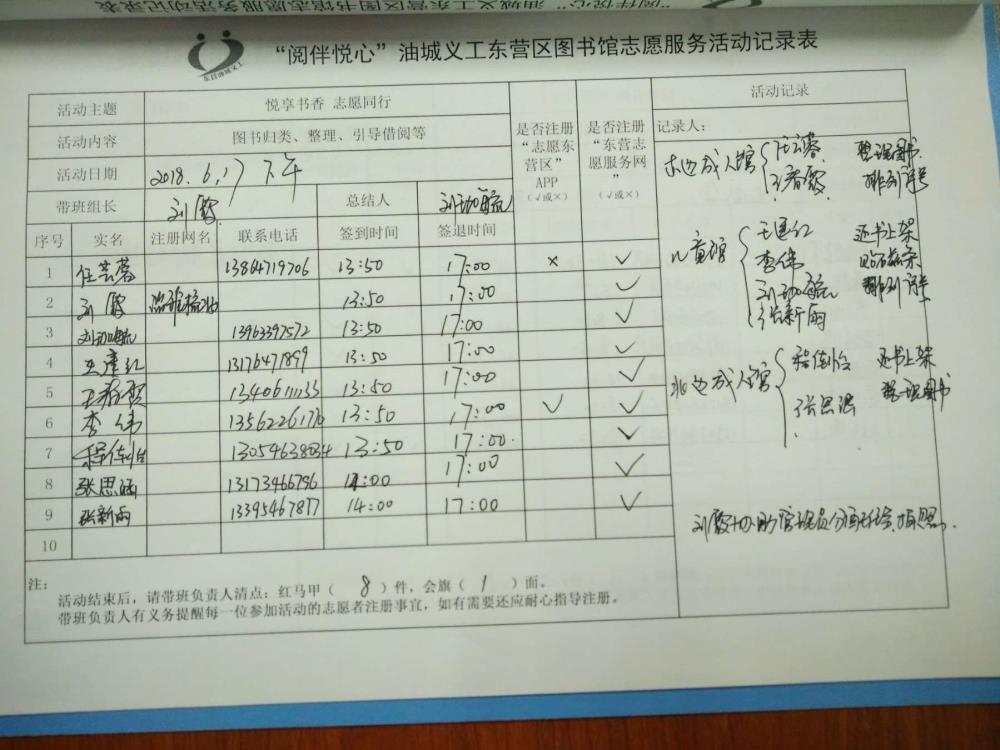 "阅伴悦心"油城义工东营区图书馆志愿服务活动记录表
东营油城义工
"阅伴悦心"油城义工东营区图书馆志愿服务活动记录表
活动主题 悦享书香 志愿同行 是否注册"志愿东营区"APP(√或×) 是否注册"东营志愿服务网"(√或×) 活动记录
活动内容 图书归类、整理、引导借阅等 记录人:
活动日期 2018.6.17 下午
带班组长 刘霞 总结人
序号 实名 注册网名 联系电话 签到时间 签退时间
1 任芸蓉 13864719706 13:50 17:00 × √
2 刘霞 13:50 17:00 √
3 13963397572 13:50 17:00 √
4 王建红 13176471899 13:50 17:00 √
5 13406111133 13:50 17:00 √
6 李伟 1356226176 13:50 17:00 √ √
7 程倩怡 13054638034 13:50 17:00 √
8 张思涵 13173466796 14:00 17:00 √
9 张新雨 13395467877 14:00 17:00 √
10
成人馆 整理图书
排列
儿童馆 王建红 还书上架
李伟
张新雨
北边成人馆 程倩怡 还书上架
张思涵 整理图书
刘霞协助管理员分配任务,拍照。
注:
活动结束后,请带班负责人清点:红马甲( 8 )件,会旗( 1 )面。
带班负责人有义务提醒每一位参加活动的志愿者注册事宜,如有需要还应耐心指导注册。